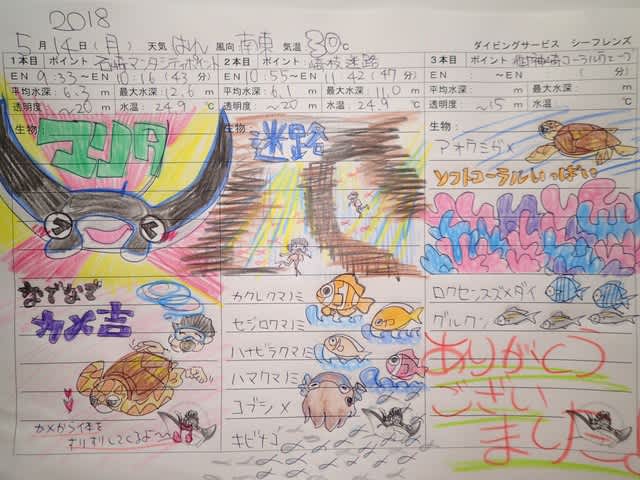 2018
5月14日(月) 天気 はれ 風向 南東 気温 30℃
ダイビングサービス シーフレンズ
1本目 ポイント 石崎マンタシティポイント
EN 9:33～EN 10:16 (43分)
平均水深:6.3m 最大水深:12.6m
透明度 ～20m 水温:24.9℃
生物:
マンタ
なでなで
カメ吉
カメから体を
すりすりしてくるよ～
2本目 ポイント 崎枝迷路
EN 10:55～EN 11:42 (47分)
平均水深:6.1m 最大水深:11.0m
透明度 ～20m 水温:24.9℃
生物:
迷路
カクレクマノミ
セジロクマノミ
ハナビラクマノミ
ハマクマノミ
コブシメ
キビナゴ
3本目 ポイント 御神崎コーラルウェーブ
EN : ～EN : ( 分)
平均水深: m 最大水深: m
透明度 ～15m 水温: ℃
生物:
アオウミガメ
ソフトコーラルいっぱい
ロクセンスズメダイ
グルクン
ありがとう
ござい
ました!